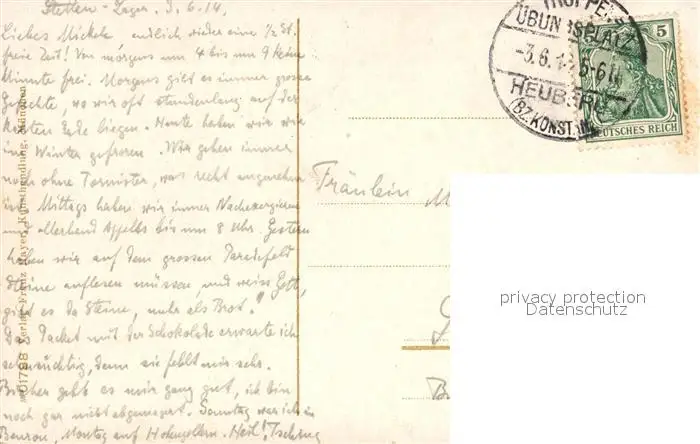 Stetten-Lager. 3.6.14.
Liebes Mickele endlich wieder eine 1/2 St.
freie Zeit! Von morgens um 4 bis um 9 keine
Minute frei. Morgens gibt es immer grosse
Gefechte, wo wir oft stundenlang auf der
kalten Erde liegen. Heute haben wir wie
im Winter gefroren. Wir gehen immer
noch ohne Tornister, was recht angenehm
ist. Mittags haben wir immer Nachexerzieren
und allerhand Appells bis um 8 Uhr. Gestern
haben wir auf dem grossen Paradefeld
Steine auflesen müssen und weiss Gott,
gibt es da Steine, mehr als Brot."
Das Packet mit der Schokolade erwarte ich
sehnsüchtig, denn sie fehlt mir sehr.
Bisher geht es mir ganz gut, ich bin
noch gar nicht abgemagert. Sonntag war ich in
Beuron, Montag auf Hohenzollern. Heil!
01798 Verlag Franz Mayer, Kunsthandlung, München
TRUPPEN
ÜBUNGSPLATZ
-3.6.14. 5-6 N
HEUBERG
(BZ. KONST.)
5
DEUTSCHES REICH
Fräulein M
privacy protection
Datenschutz